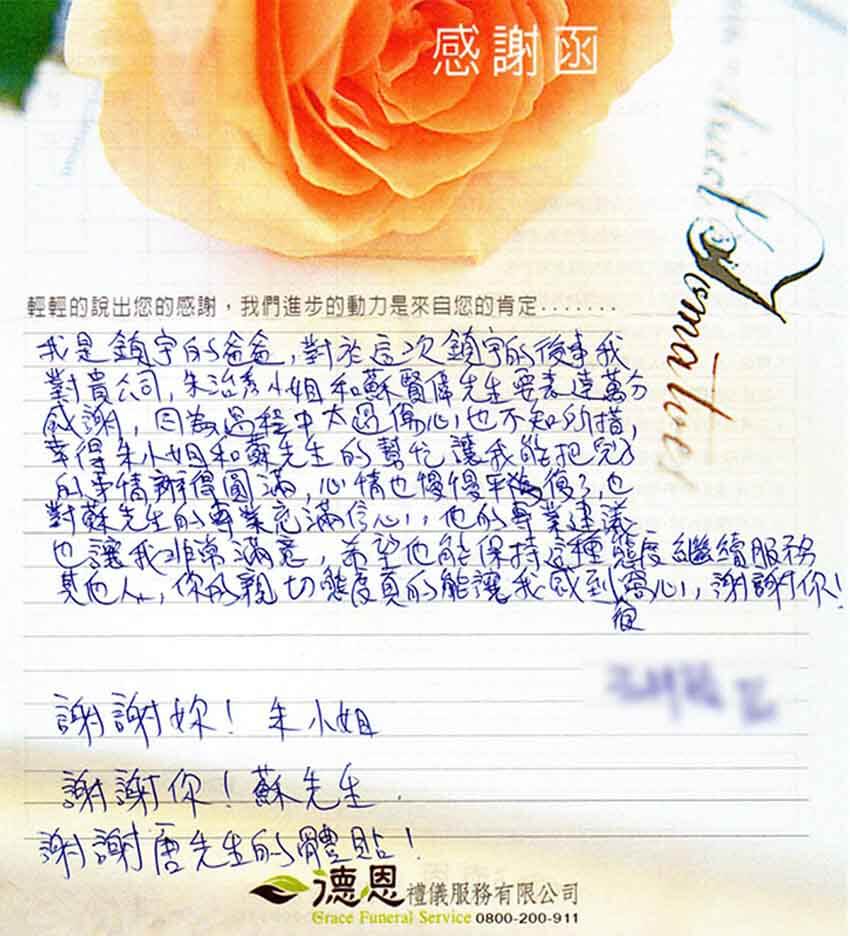 感謝函
輕輕的說出您的感謝，我們進步的動力是來自您的肯定.......
我是鎮宇的爸爸，對於這次鎮宇的後事我
對貴公司，朱治彥小姐和蘇賢偉先生要表達萬分
感謝，因為過程中太過傷心，也不知所措，
幸得朱小姐和蘇先生的幫忙讓我能把兒子
的事情辦得圓滿，心情也慢慢平復了，也
對蘇先生的專業充滿信心，他的專業建議
也讓我非常滿意，希望他能保持這種態度繼續服務
其他人，你的親切態度真的能讓我感到很窩心，謝謝你！
謝謝妳！朱小姐
謝謝你！蘇先生.
謝謝唐先生的體貼！
德恩禮儀服務有限公司
Grace Funeral Service 0800-200-911